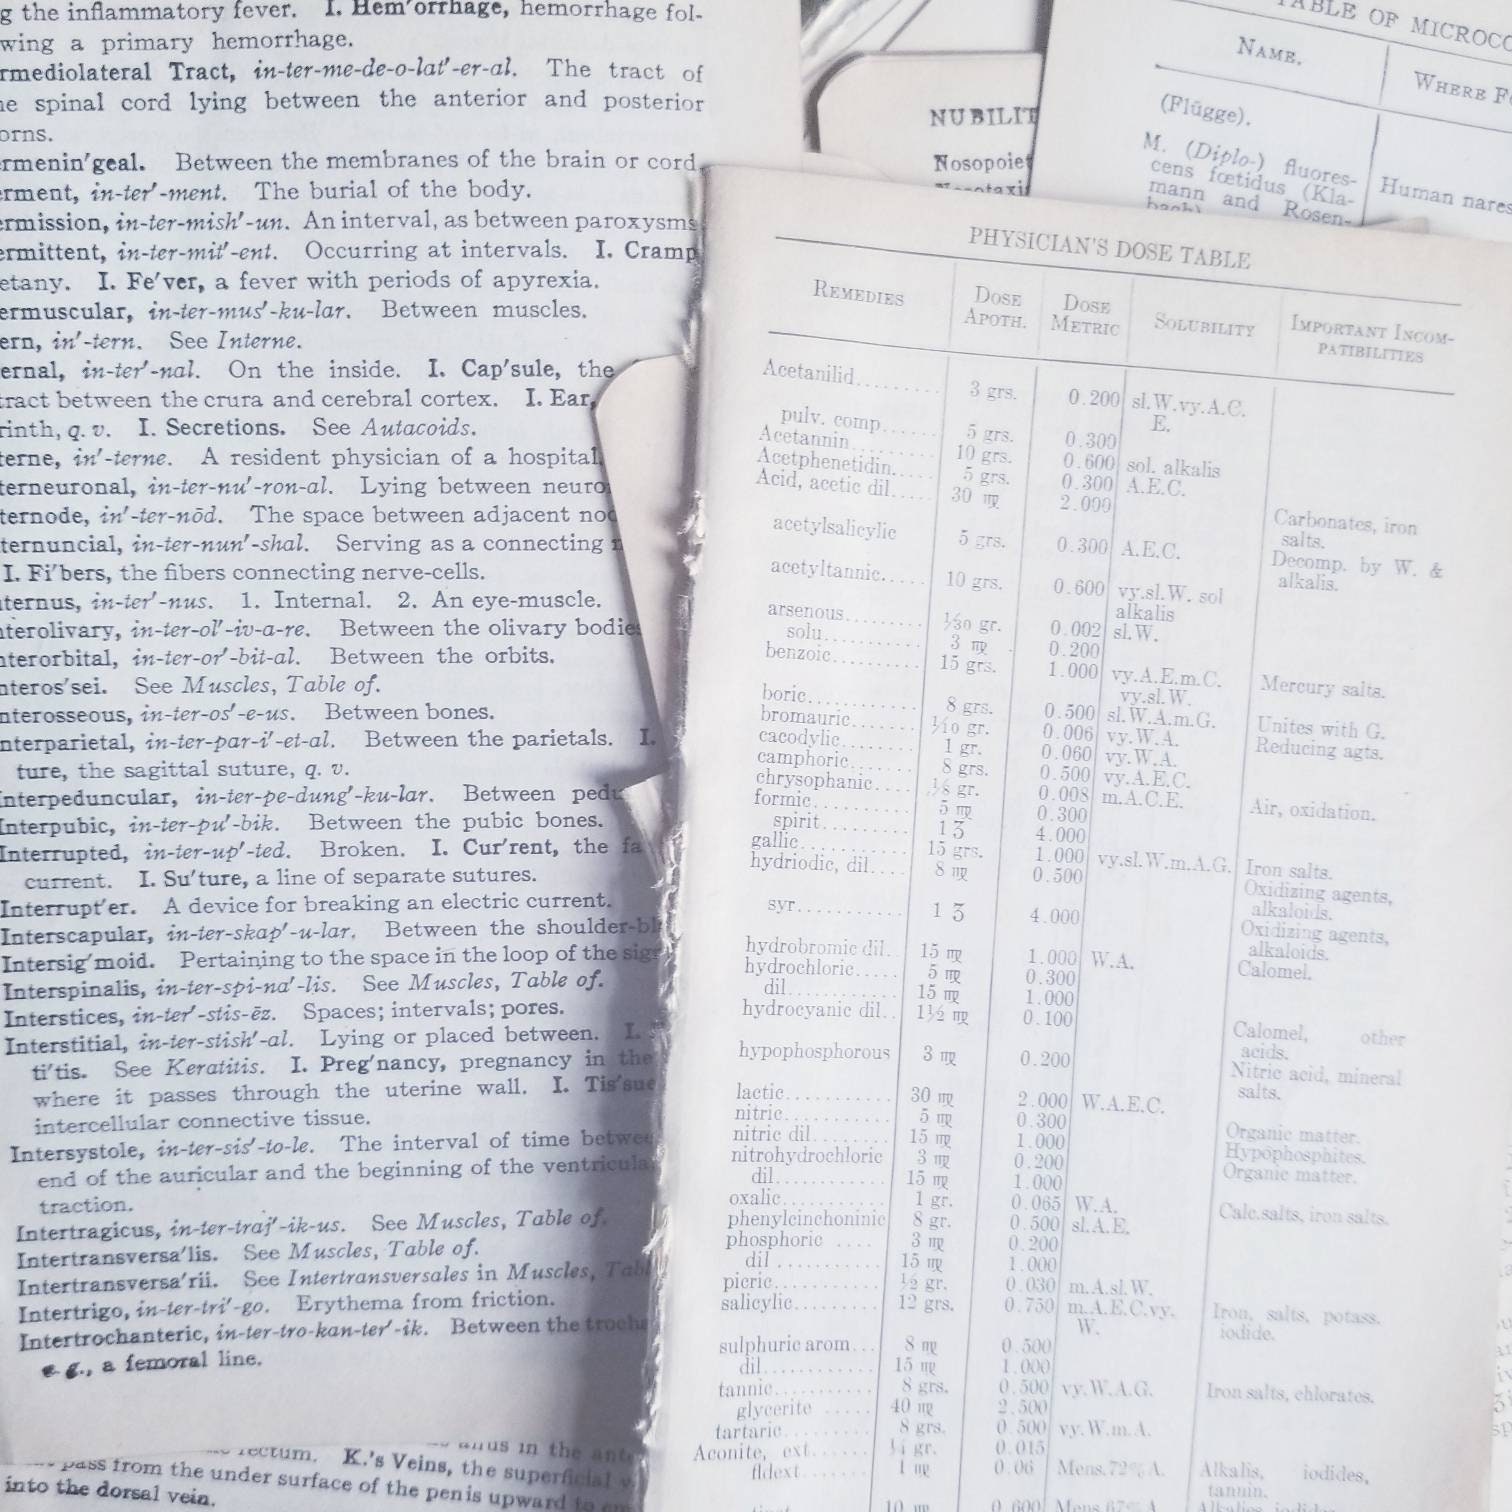 g the inflammatory fever. I. Hem′orrhage, hemorrhage fol-
wing a primary hemorrhage.
rmediolateral Tract, in-ter-me-de-o-lat′-er-al. The tract of
e spinal cord lying between the anterior and posterior
orns.
rmenin′geal. Between the membranes of the brain or cord.
erment, in-ter′-ment. The burial of the body.
ermission, in-ter-mish′-un. An interval, as between paroxysms
ermittent, in-ter-mit′-ent. Occurring at intervals. I. Cramp
etany. I. Fe′ver, a fever with periods of apyrexia.
ermuscular, in-ter-mus′-ku-lar. Between muscles.
ern, in′-tern. See Interne.
ernal, in-ter′-nal. On the inside. I. Cap′sule, the
tract between the crura and cerebral cortex. I. Ear,
rinth, q. v. I. Secretions. See Autacoids.
terne, in′-terne. A resident physician of a hospital.
terneuronal, in-ter-nu′-ron-al. Lying between neuro
ternode, in′-ter-nōd. The space between adjacent nod
ternuncial, in-ter-nun′-shal. Serving as a connecting
I. Fi′bers, the fibers connecting nerve-cells.
ternus, in-ter′-nus. 1. Internal. 2. An eye-muscle.
nterolivary, in-ter-ol′-iv-a-re. Between the olivary bodies
nterorbital, in-ter-or′-bit-al. Between the orbits.
nteros′sei. See Muscles, Table of.
nterosseous, in-ter-os′-e-us. Between bones.
nterparietal, in-ter-par-i′-et-al. Between the parietals. I.
ture, the sagittal suture, q. v.
Interpeduncular, in-ter-pe-dung′-ku-lar. Between pedu
Interpubic, in-ter-pu′-bik. Between the pubic bones.
Interrupted, in-ter-up′-ted. Broken. I. Cur′rent, the fa
current. I. Su′ture, a line of separate sutures.
Interrupt′er. A device for breaking an electric current.
Interscapular, in-ter-skap′-u-lar. Between the shoulder-bl
Intersig′moid. Pertaining to the space in the loop of the sig
Interspinalis, in-ter-spi-na′-lis. See Muscles, Table of.
Interstices, in-ter′-stis-ēz. Spaces; intervals; pores.
Interstitial, in-ter-stish′-al. Lying or placed between. I.
ti′tis. See Keratitis. I. Preg′nancy, pregnancy in the
where it passes through the uterine wall. I. Tis′sue
intercellular connective tissue.
Intersystole, in-ter-sis′-to-le. The interval of time betwee
end of the auricular and the beginning of the ventricula
traction.
Intertragicus, in-ter-traj′-ik-us. See Muscles, Table of.
Intertransversa′lis. See Muscles, Table of.
Intertransversa′rii. See Intertransversales in Muscles, Tabl
Intertrigo, in-ter-tri′-go. Erythema from friction.
Intertrochanteric, in-ter-tro-kan-ter′-ik. Between the trocha
e. g., a femoral line.
rectum. K.'s Veins, the superficial v
pass from the under surface of the penis upward to
into the dorsal vein.
NUBILIT
Nosopoiet
TABLE OF MICROCO
NAME. WHERE F
(Flügge).
M. (Diplo-) fluores-
cens fœtidus (Kla- Human nares
mann and Rosen-
bach)
PHYSICIAN'S DOSE TABLE
REMEDIES DOSE APOTH. DOSE METRIC SOLUBILITY IMPORTANT INCOM-PATIBILITIES
Acetanilid......... 3 grs. 0.200 sl.W.vy.A.C. E.
pulv. comp...... 5 grs. 0.300
Acetannin......... 10 grs. 0.600 sol. alkalis
Acetphenetidin..... 5 grs. 0.300 A.E.C.
Acid, acetic dil..... 30 ♏ 2.000 Carbonates, iron salts.
acetylsalicylic 5 grs. 0.300 A.E.C. Decomp. by W. & alkalis.
acetyltannic..... 10 grs. 0.600 vy.sl.W. sol alkalis
arsenous......... 1/30 gr. 0.002 sl.W.
solu......... 3 ♏ 0.200
benzoic......... 15 grs. 1.000 vy.A.E.m.C. vy.sl.W. Mercury salts.
boric......... 8 grs. 0.500 sl.W.A.m.G. Unites with G.
bromauric....... 1/10 gr. 0.006 vy.W.A. Reducing agts.
cacodylic........ 1 gr. 0.060 vy.W.A.
camphoric....... 8 grs. 0.500 vy.A.E.C.
chrysophanic.... 1/8 gr. 0.008 m.A.C.E. Air, oxidation.
formic.......... 5 ♏ 0.300
spirit......... 1 ʒ 4.000
gallic........... 15 grs. 1.000 vy.sl.W.m.A.G. Iron salts.
hydriodic, dil.... 8 ♏ 0.500 Oxidizing agents, alkaloids.
syr........... 1 ʒ 4.000 Oxidizing agents, alkaloids.
hydrobromic dil. 15 ♏ 1.000 W.A. Calomel.
hydrochloric..... 5 ♏ 0.300
dil............ 15 ♏ 1.000
hydrocyanic dil.. 1½ ♏ 0.100 Calomel, other acids.
hypophosphorous 3 ♏ 0.200 Nitric acid, mineral salts.
lactic........... 30 ♏ 2.000 W.A.E.C.
nitric........... 5 ♏ 0.300 Organic matter.
nitric dil........ 15 ♏ 1.000 Hypophosphites.
nitrohydrochloric 3 ♏ 0.200 Organic matter.
dil............ 15 ♏ 1.000
oxalic........... 1 gr. 0.065 W.A. Calc.salts, iron salts.
phenylcinchoninic 8 gr. 0.500 sl.A.E.
phosphoric .... 3 ♏ 0.200
dil ........... 15 ♏ 1.000
picric........... ½ gr. 0.030 m.A.sl.W.
salicylic......... 12 grs. 0.750 m.A.E.C.vy. W. Iron, salts, potass. iodide.
sulphuric arom... 8 ♏ 0.500
dil............ 15 ♏ 1.000
tannic........... 8 grs. 0.500 vy.W.A.G. Iron salts, chlorates.
glycerite ..... 40 ♏ 2.500
tartaric.......... 8 grs. 0.500 vy.W.m.A.
Aconite, ext....... ¼ gr. 0.015
fldext........ 1 ♏ 0.06 Mens.72% A. Alkalis, iodides, tannin.
10 ♏ 0.600